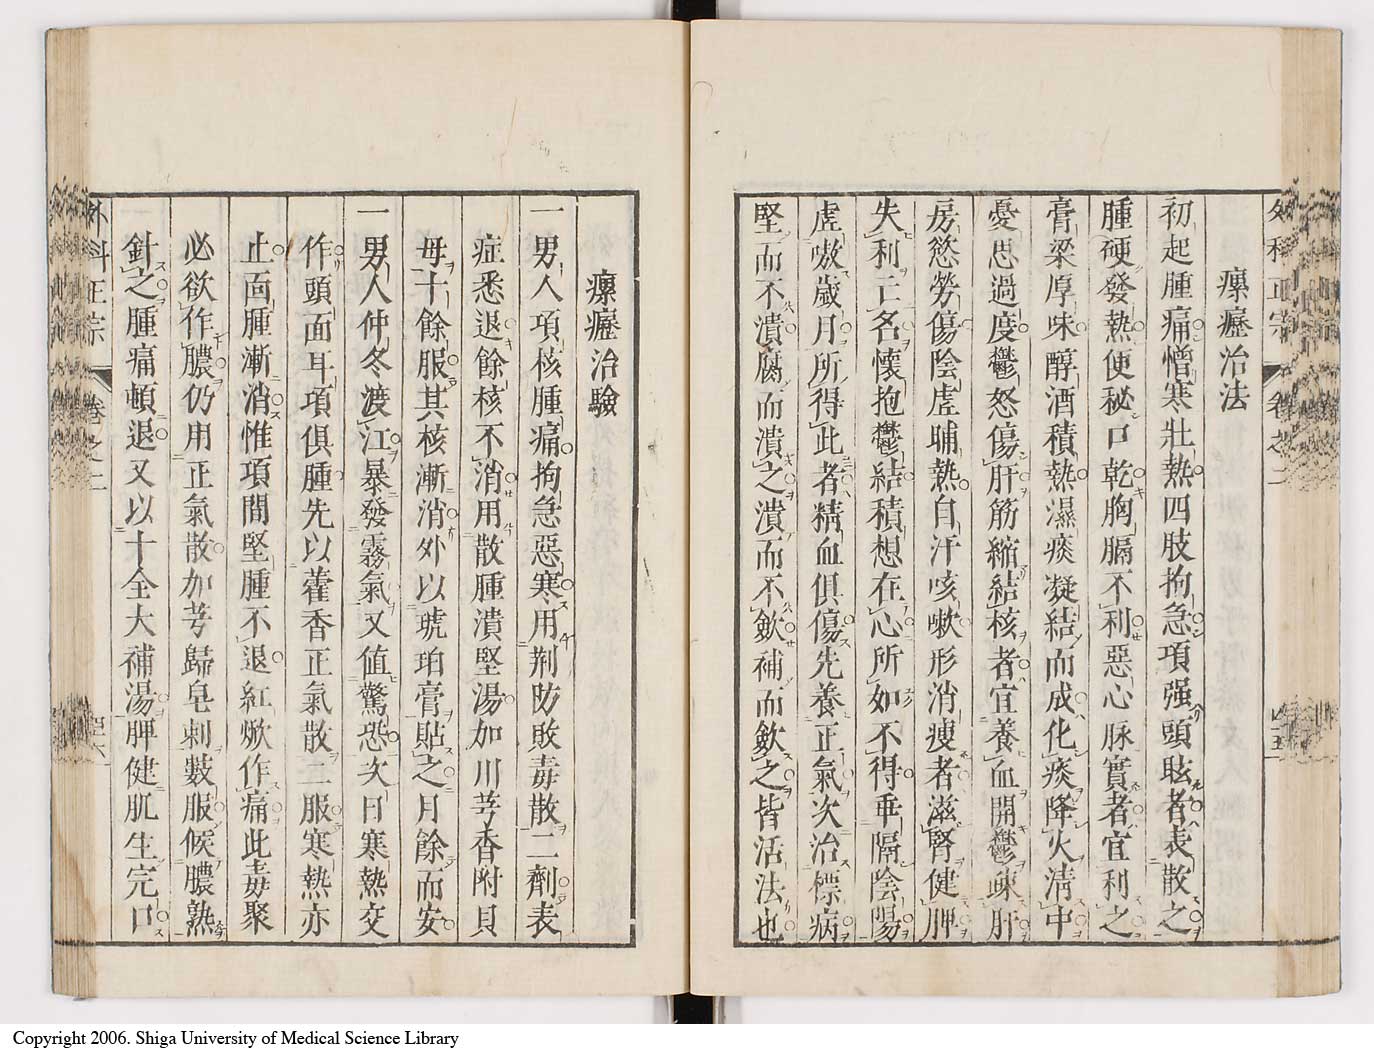 外科正宗 卷之二 四五
瘰癧治法
初起腫痛憎寒壯熱四肢拘急項强頭眩者表散之
腫硬發熱便秘口乾胸膈不利惡心脉實者宜利之
膏梁厚味醇酒積熱濕痰凝結而成化痰降火清中
憂思過度鬱怒傷肝筋縮結核者宜養血開鬱疎肝
房慾勞傷陰虛晡熱自汗咳嗽形消瘦者滋腎健脾
失利亡名懷抱鬱結積想在心所如不得垂隔陰陽
虛啾歲月所得此者精血俱傷先養正氣次治標病
堅而不潰腐而潰之潰而不斂補而斂之皆活法也
瘰癧治驗
一男人項核腫痛拘急惡寒用荆防敗毒散二劑表
症悉退餘核不消用散腫潰堅湯加川芎香附貝
母十餘服其核漸消外以琥珀膏貼之月餘而安
一男人仲冬渡江暴發霧氣又値驚恐次日寒熱交
作頭面耳項俱腫先以藿香正氣散二服寒熱亦
止面腫漸消惟項間堅腫不退紅焮作痛此毒聚
必欲作膿仍用正氣散加芎歸皂刺數服候膿熟
針之腫痛頓退又以十全大補湯脾健肌生完口
外科正宗 卷之二 四六
Copyright 2006. Shiga University of Medical Science Library